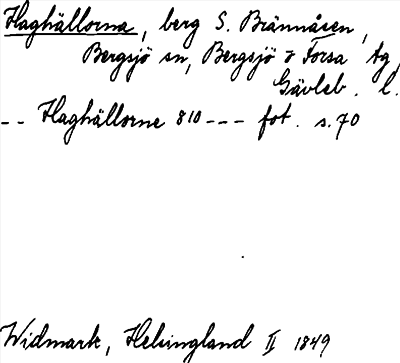 Haghällorna, berg S. Brännåsen,
Bergsjö sn, Bergsjö o Forsa tg,
Gävleb. l.
-- Haghällorne 810 --- fot. s. 70
Widmark, Helsingland II 1849